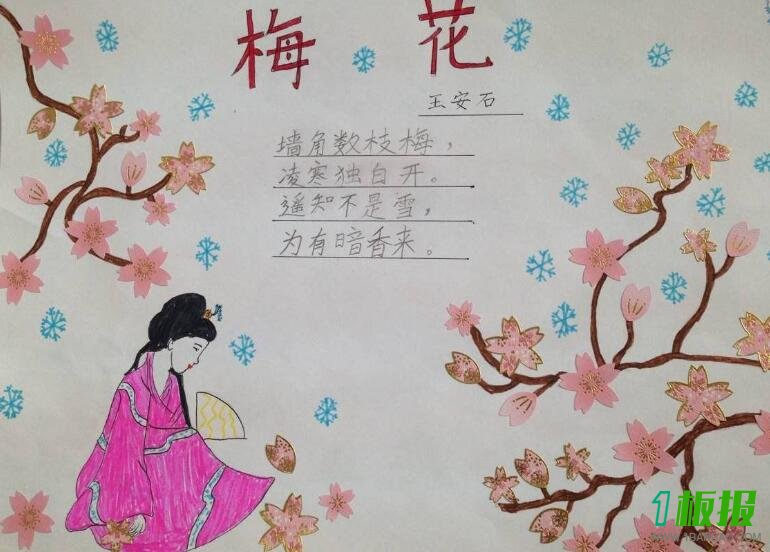 梅花
王安石
墙角数枝梅，
凌寒独自开。
遥知不是雪，
为有暗香来。
1板报
WWW.1BANBAO.COM